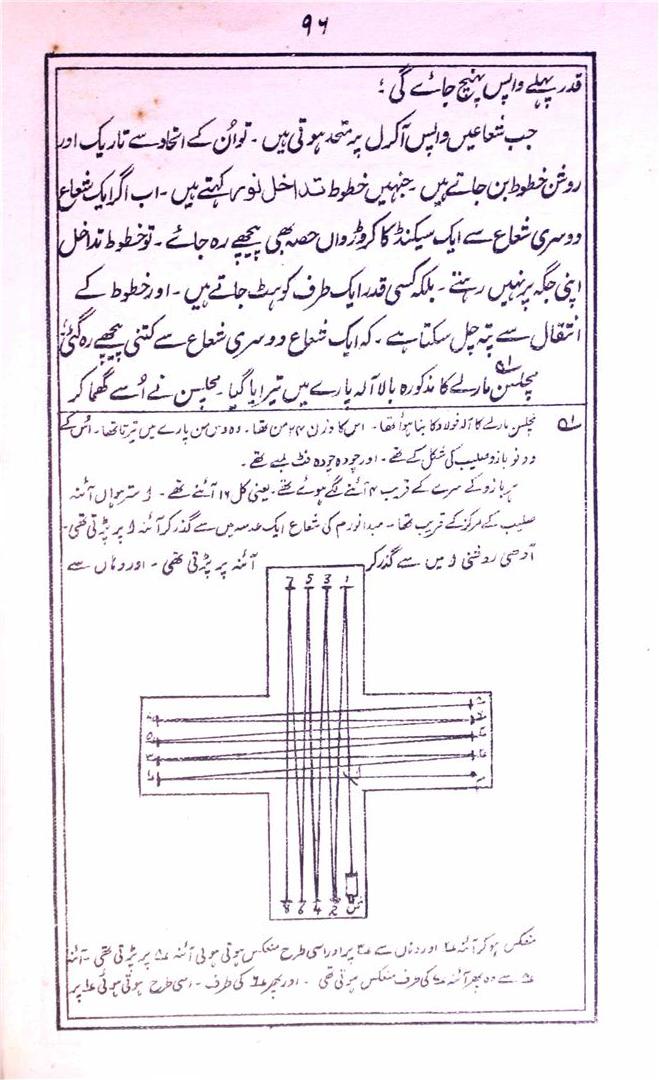 ۹۶
قدر پہلے واپس پہنچ جائے گی ؛
جب شعاعیں واپس آکر ل پر متحد ہوتی ہیں ۔ تو اُن کے اتحاد سے تاریک اور
روشن خطوط بن جاتے ہیں ۔ جنہیں خطوط تداخل نور کہتے ہیں ۔ اب اگر ایک شعاع
دوسری شعاع سے ایک سیکنڈ کا کروڑواں حصہ بھی پیچھے رہ جائے ۔ تو خطوط تداخل
اپنی جگہ پر نہیں رہتے ۔ بلکہ کسی قدر ایک طرف کو ہٹ جاتے ہیں ۔ اور خطوط کے
انتقال سے پتہ چل سکتا ہے ۔ کہ ایک شعاع دوسری شعاع سے کتنی پیچھے رہ گئی ؛
مچلسن مارلے کا مذکورہ بالا آلہ پارے میں تیرایا گیا ۔ مچلسن نے اُسے گھما کر
مچلسن مارلے کا آلہ فولاد کا بنا ہوا تھا ۔ اس کا وزن ۲۴ من تھا ۔ وہ دس من پارے میں تیرتا تھا ۔ اس کے
دونو بازو صلیب کی شکل کے تھے ۔ اور چودہ چودہ فٹ لمبے تھے ۔
ہر بازو کے سرے کے قریب ۴ آئنے لگے ہوئے تھے ۔ یعنی کل ۱۶ آئنے تھے ۔ ا سترہواں آئنہ
صلیب کے مرکز کے قریب تھا ۔ مبدا نور م کی شعاع ایک عدسہ میں سے گذر کر آئنہ ا پر پڑتی تھی ۔
آدھی روشنی ا میں سے گذر کر آئنہ پر پڑتی تھی ۔ اور وہاں سے
7 5 3 1
8 6 4 2
منعکس ہو کر آئنہ ۲ اور وہاں سے ۳ پر اور اسی طرح منعکس ہوتی ہوئی آئنہ ۸ پر پڑتی تھی ۔ آئنہ
۸ سے وہ پھر آئنہ ۷ کی طرف منعکس ہوتی تھی ۔ اور پھر ۶ کی طرف ۔ اسی طرح ہوتی ہوئی ۱ پر